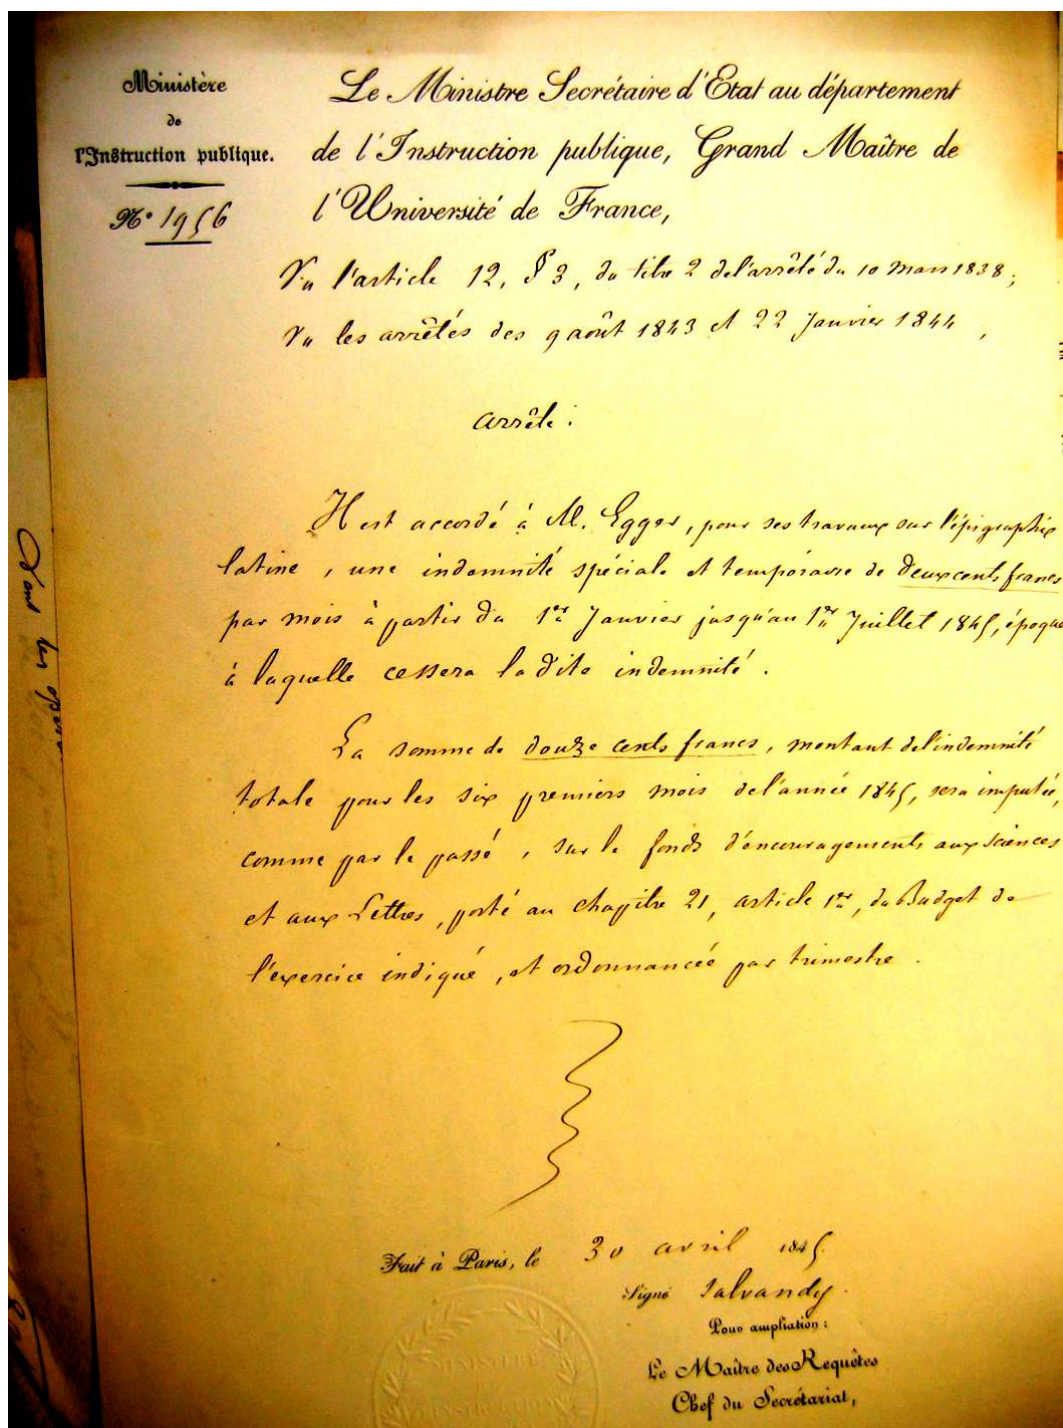 Ministère
de
l'Instruction publique.
N° 1956
Le Ministre Secrétaire d'Etat au département
de l'Instruction publique, Grand Maître de
l'Université de France,
Vu l'article 12, § 3, du titre 2 de l'arrêté du 10 mars 1838;
Vu les arrêtés des 9 août 1843 et 22 Janvier 1844,
arrête:
Il est accordé à M. Egger, pour ses travaux sur l'épigraphie
latine, une indemnité spéciale et temporaire de deux cents francs
par mois à partir du 1er Janvier jusqu'au 1er Juillet 1845, époque
à laquelle cessera la dite indemnité.
La somme de douze cents francs, montant de l'indemnité
totale pour les six premiers mois de l'année 1845, sera imputée,
comme par le passé, sur le fonds d'encouragements aux sciences
et aux Lettres, porté au chapitre 21, article 1er, du Budget de
l'exercice indiqué, et ordonnancée par trimestre.
Fait à Paris, le 30 avril 1845.
Signé Salvandy.
Pour ampliation:
Le Maître des Requêtes
Chef du Secrétariat,
MINISTERE
INSTRUCTION